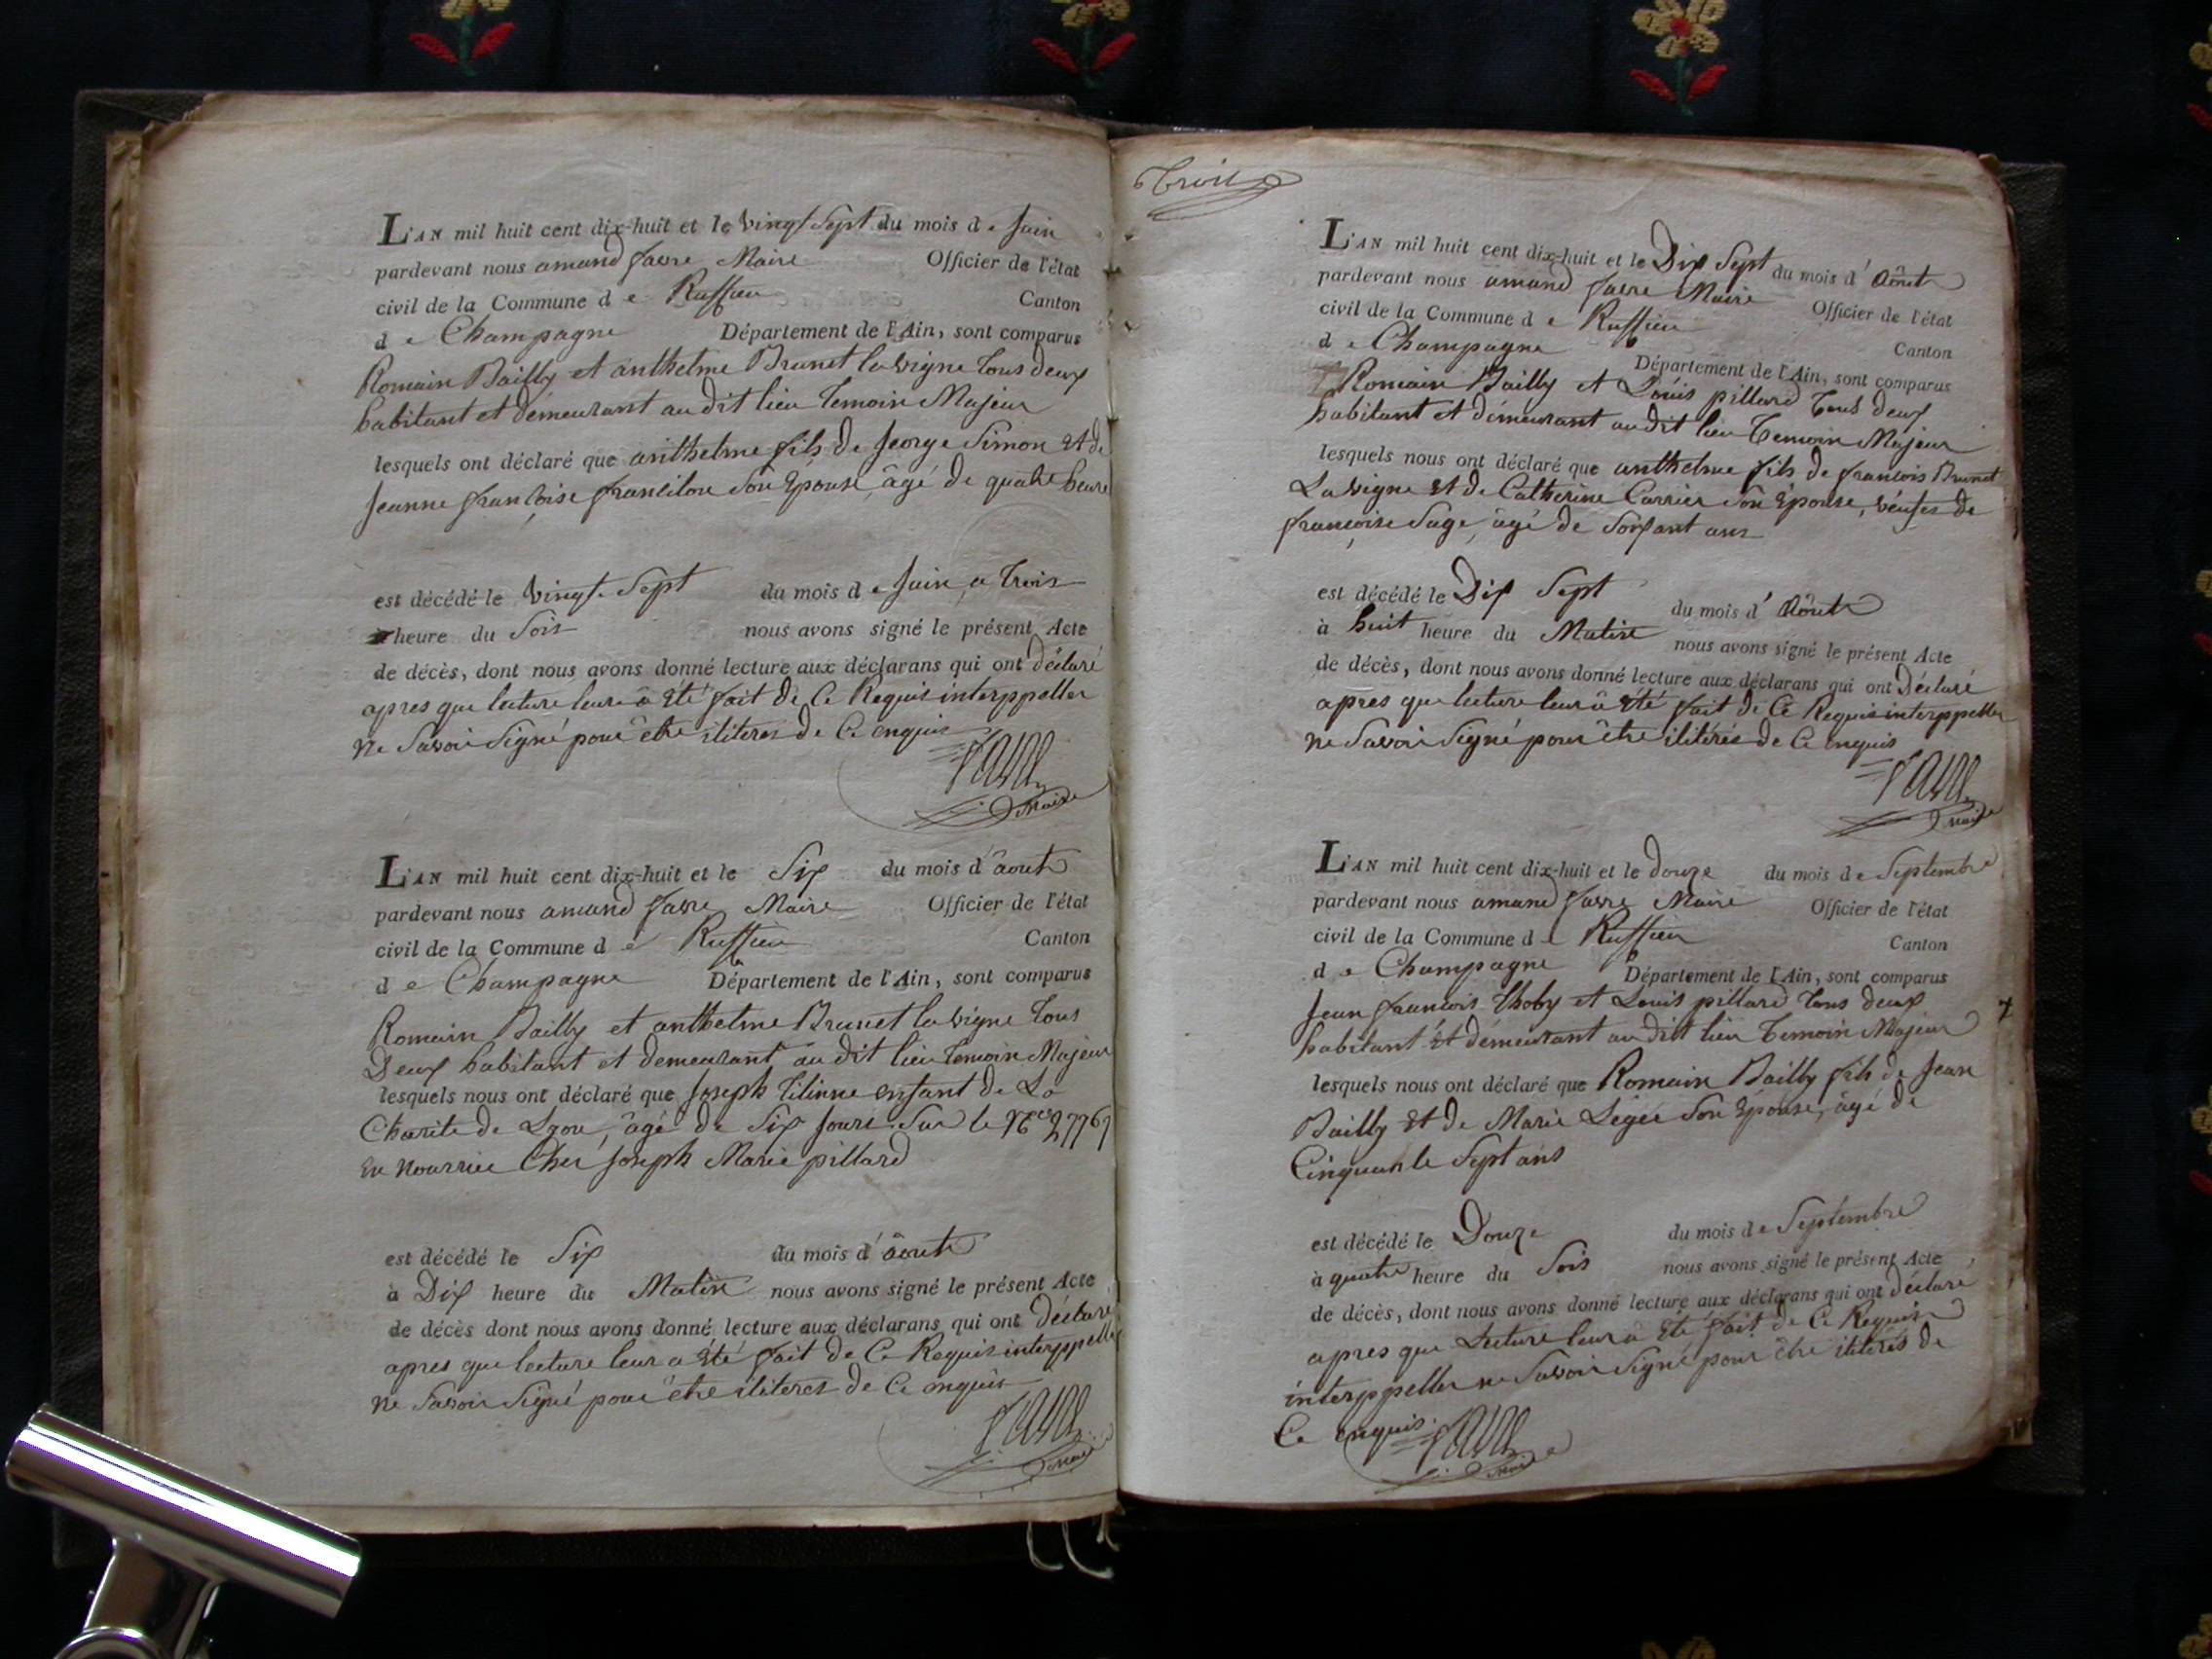 L'AN mil huit cent dix-huit et le vingt Sept du mois de Juin
pardevant nous amand favre Maire Officier de l'état
civil de la Commune de Ruffieu Canton
de Champagne Département de l'Ain, sont comparus
Romain Bailly et anthelme Brunet la vigne tous deux
habitant et demeurant au dit lieu temoin Majeur
lesquels ont déclaré que anthelme fils de George Simon et de
Jeanne françoise francilon son Epouse, âgé de quatre heure
est décédé le vingt Sept du mois de Juin a trois
heure du Soir nous avons signé le présent Acte
de décès, dont nous avons donné lecture aux déclarans qui ont déclaré
apres que lecture leur a été fait de Ce Requis interppeller
ne Savoir Signé pour être iliteres de Ce enquis
favre
Maire
L'AN mil huit cent dix-huit et le Six du mois d'âout
pardevant nous amand favre Maire Officier de l'état
civil de la Commune de Ruffieu Canton
de Champagne Département de l'Ain, sont comparus
Romain Bailly et anthelme Brunet la vigne tous
Deux habitant et demeurant au dit lieu temoin Majeur
lesquels nous ont déclaré que Joseph enfant de La
Charite de Lyon, âgé de Six Jours Sur le
en nourrice Cher Joseph Marie pillard
est décédé le Six du mois d'âout
à Dix heure du Matin nous avons signé le présent Acte
de décès dont nous avons donné lecture aux déclarans qui ont Déclaré
apres que lecture leur a été fait de Ce Requis interppeller
ne Savoir Signé pour être iliteres de Ce enquis
favre
Maire
Trois
L'AN mil huit cent dix-huit et le Dix Sept du mois d'Aôut
pardevant nous amand favre Maire Officier de l'état
civil de la Commune de Ruffieu Canton
de Champagne Département de l'Ain, sont comparus
Romain Bailly et Louis pillard tous deux
habitant et démeurant au dit lieu temoin Majeur
lesquels nous ont déclaré que anthelme fils de francois Brunet
La vigne et de Catherine Carrier son Epouse, veufs de
françoise Sage, âgé de Soixant ans
est décédé le Dix Sept du mois d'Aôut
à huit heure du Matin nous avons signé le présent Acte
de décès, dont nous avons donné lecture aux déclarans qui ont Déclaré
apres que lecture leur a été fait de Ce Requis interppeller
ne Savoir Signé pour être ilitérés de Ce enquis
favre
Maire
L'AN mil huit cent dix-huit et le douze du mois de Septembre
pardevant nous amand favre Maire Officier de l'état
civil de la Commune de Ruffieu Canton
de Champagne Département de l'Ain, sont comparus
Jean francois thoby et Louis pillard tous deux
habitant Et démeurant au dit lieu temoin Majeur
lesquels nous ont déclaré que Romain Bailly fils de Jean
Bailly Et de Marie Leger son Epouse, âgé de
Cinquante Sept ans
est décédé le Douze du mois de Septembre
à quatre heure du Soir nous avons signé le présent Acte
de décès, dont nous avons donné lecture aux déclarans qui ont déclaré
apres que Lecture leur a été fait de Ce Requis
interppeller ne Savoir Signé pour être iliterés de
Ce enquis
favre
Maire